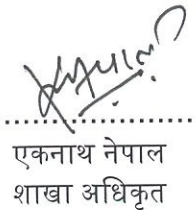 एकनाथ नेपाल
शाखा अधिकृत